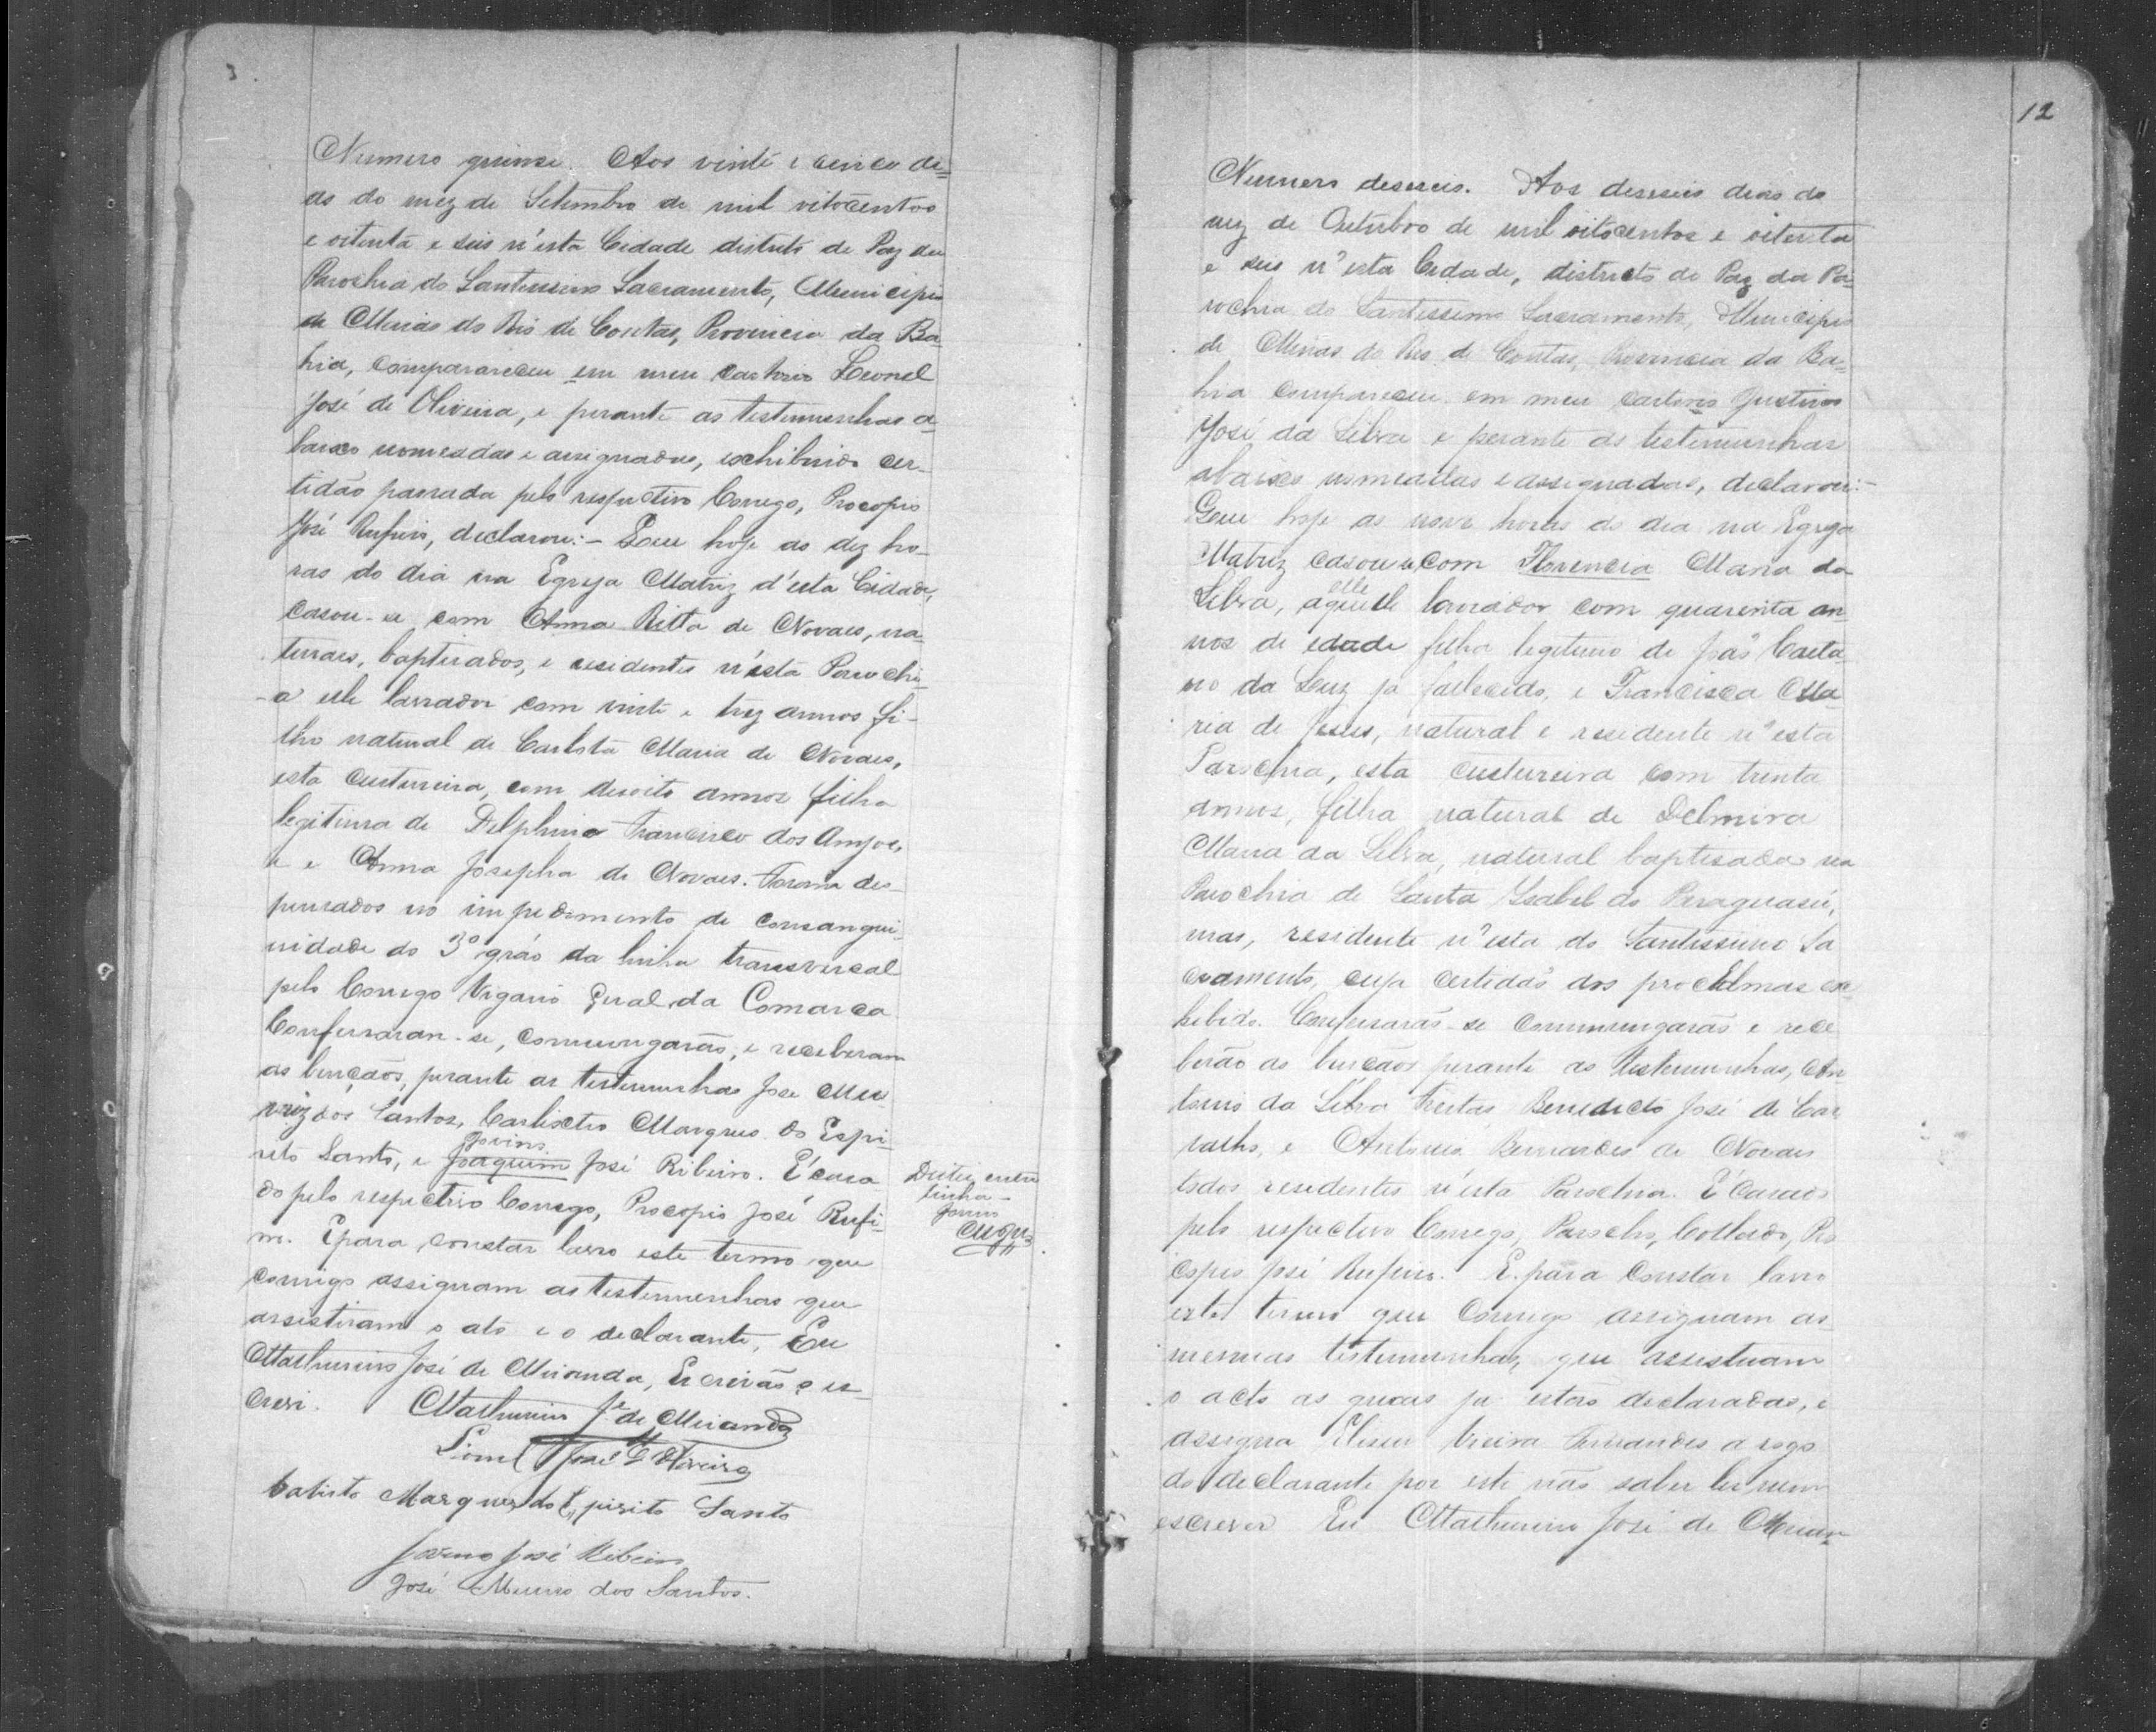 Numero quinse. Aos vinte e cinco di=
as do mez de Setembro de mil oitocentos
e oitenta e seis n'esta Cidade districto de Paz da
Parochia do Santissimo Sacramento, Municipio
de Minas do Rio de Contas, Provincia da Ba
hia, comparareceu em meu Cartorio Leonel
José de Oliveira, e perante as testemunhas a
baixo nomeadas e assignadas, exhibindo cer-
tidão passada pelo respectivo Conego, Procopio
José Rufino, declarou:- Que hoje as dez ho-
ras do dia na Egreja Matriz d'esta Cidade,
casou-se com Anna Ritta de Novaes, na
turaes, baptisados, e residentes n'esta Parochi-
-a elle lavrador com vinte e trez annos fi-
lho natural de Carlota Maria de Novaes,
esta custureira, com desoito annos filha
legitima de Delphino Francisco dos Anjos,
e Anna Josepha de Novaes. Foram des-
pensados no impedimento de consangui-
nidade do 3º gráo da linha transversal
pelo Conego Vigario Geral da Comarca
Confessaram-se, commungarão, e receberam
as bençãos, perante as testemunhas José Mu
niz dos Santos, Carlixtro Marques do Espi-
Jovino
rito Santo, e Joaquim José Ribeiro. É casa
do pelo respectivo Conego, Procopio José Rufi-
no. E para constar lavro este termo que
comigo assignam as testemunhas que
assistiram o ato e o declarante, Eu
Mathurino José de Miranda, Escrivão o es-
crevi. Mathurino Jé de Miranda
Lionel José d'Oliveira
Calisto Marques do Espirito Santo
Jovino José Ribeiro
José Muniz dos Santos.
entre
linha-
Jovino
12
Numero deseseis. Aos deseseis dias do
mez de Outubro de mil oitocentos e oitenta
e seis n'esta Cidade, districto de Paz da Pa
rochia do Santissimo Sacramento, Municipio
de Minas do Rio de Contas, Provincia da Ba=
hia compareceu em meu cartorio Justino
José da Silva e perante as testemunhas
abaixo nomeadas e assignadas, declarou:-
Que hoje as nove horas do dia na Egreja
Matriz casou se com Florencia Maria da
elle
Silva, aquelle lavrador com quarenta an
nos de edade filho legitimo de João Caeta
no da Luz ja fallecido, e Francisca Ma
ria de Jesus, natural e residente n'esta
Parochia, esta custureira com trinta
annos, filha natural de Delmira
Maria da Silva, natural baptisada na
Parochia de Santa Isabel do Paraguasú,
mas, residente n'esta do Santissimo Sa
cramento, cuja certidão dos proclamas ex
hibido. Confessarão-se commungarão e rece
berão as bençãos perante as testemunhas, An
tonio da Silva Freitas, Benedicto José de Car
valho, e Antonio Bernardes de Novaes
todos residentes n'esta Parochia. É Casado
pelo respectivo Conego, Parocho, Collado, Pro
copio José Rufino. E para constar lavro
este termo que comigo assignam as
mesmas testemunhas, que assistiram
o acto as quaes ja estão declaradas, e
assigna Eliseu Vieira Fernandes a rogo
do declarante por este não saber ler nem
escrever Eu Mathurino José de Miran=